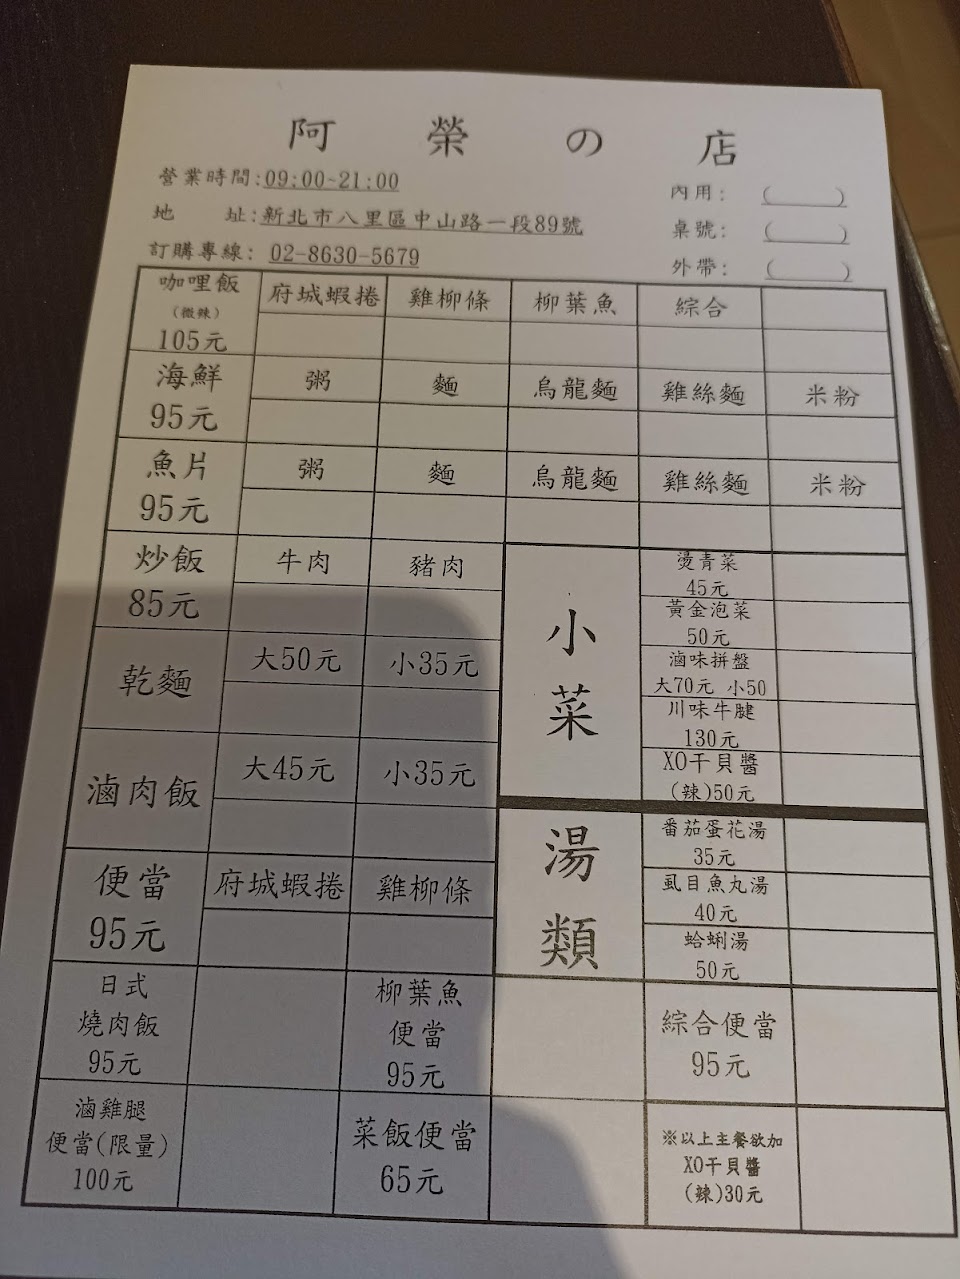 阿榮の店
營業時間:09:00~21:00
內用: (  )
地 址:新北市八里區中山路一段89號
桌號: (  )
訂購專線: 02-8630-5679
外帶: (  )
咖哩飯
(微辣)
105元
府城蝦捲
雞柳條
柳葉魚
綜合
海鮮
95元
粥
麵
烏龍麵
雞絲麵
米粉
魚片
95元
粥
麵
烏龍麵
雞絲麵
米粉
炒飯
85元
牛肉
豬肉
乾麵
大50元
小35元
滷肉飯
大45元
小35元
便當
95元
府城蝦捲
雞柳條
小菜
燙青菜
45元
黃金泡菜
50元
滷味拼盤
大70元 小50
川味牛腱
130元
XO干貝醬
(辣)50元
湯類
番茄蛋花湯
35元
虱目魚丸湯
40元
蛤蜊湯
50元
日式
燒肉飯
95元
柳葉魚
便當
95元
綜合便當
95元
滷雞腿
便當(限量)
100元
菜飯便當
65元
※以上主餐欲加
XO干貝醬
(辣)30元